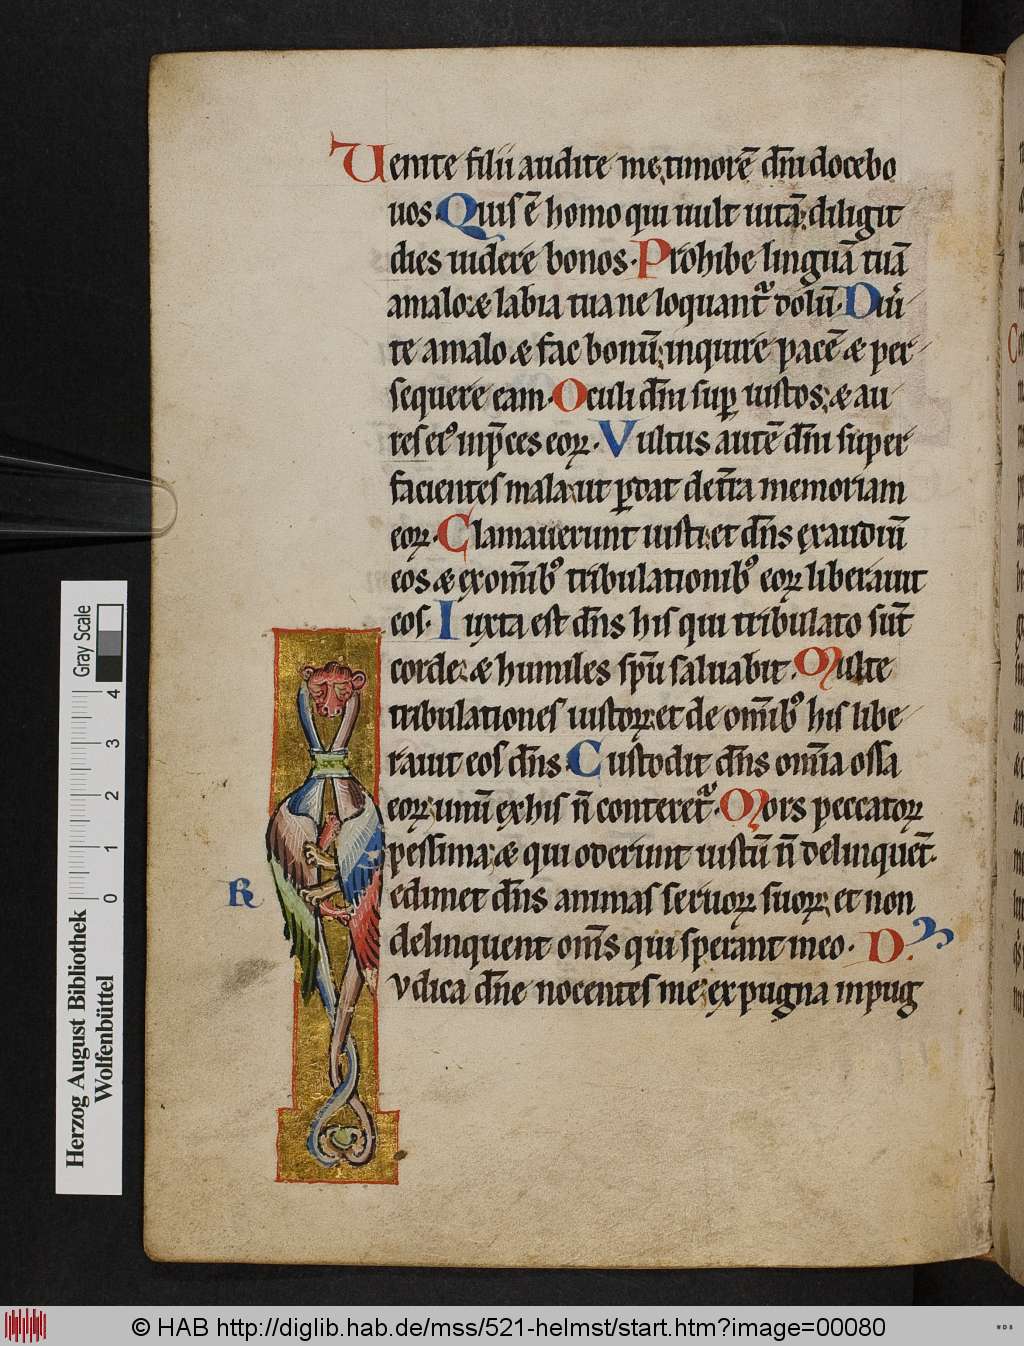 Uenite filii audite me, timorē dñi docebo
uos. Quis ē homo qui uult uitā; diligit
dies uidere bonos. Prohibe linguā tuā
a malo; & labia tua ne loquant᷑ dolū. Diũ
te a malo & fac bonū; inquire pacē & per
sequere eam. Oculi dñi suꝑ iustos; & au
res ei᷒ in p̄ces eoꝝ. Vultus autē dñi super
facientes mala; ut ꝑdat de t̄ra memoriam
eoꝝ. Clamauerunt iusti; et dñs exaudiū
eos & ex om̄ib᷒ tribulationib᷒ eoꝝ liberauit
eos. Iuxta est dñs his qui tribulato sūt
corde; & humiles sp̄u saluabit. Multe
tribulationes iustoꝝ; et de om̄ib᷒ his libe
rauit eos dñs. Custodit dñs om̄ia ossa
eoꝝ; unū ex his n̄ conteret᷑. Mors peccatoꝝ
pessima; & qui oderunt iustū n̄ delinquēt.
R edimet dñs animas seruoꝝ suoꝝ; et non
delinquent om̄s qui sperant in eo. D. D.
Iudica dñe nocentes me; expugna inpug
Herzog August Bibliothek
Wolfenbüttel
0 1 2 3 4
Gray Scale
© HAB http://diglib.hab.de/mss/521-helmst/start.htm?image=00080